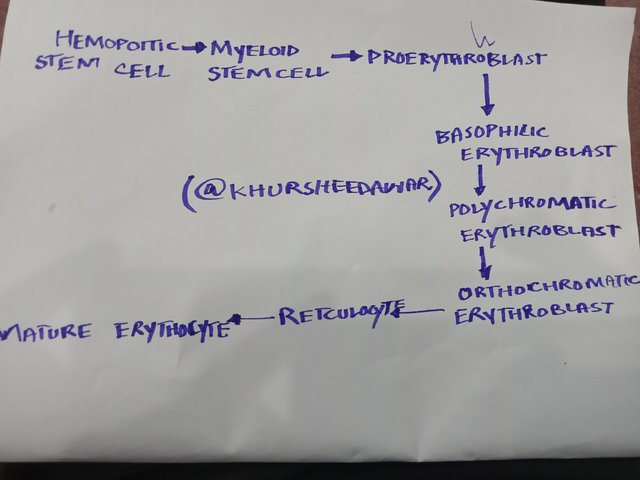 HEMOPOITIC → MYELOID → PROERYTHROBLAST
STEM CELL STEM CELL
BASOPHILIC
ERYTHROBLAST
(@KHURSHEEDAWAR)
POLYCHROMATIC
ERYTHROBLAST
ORTHOCHROMATIC
ERYTHROBLAST
RETCULOCYTE
MATURE ERYTHOCYTE